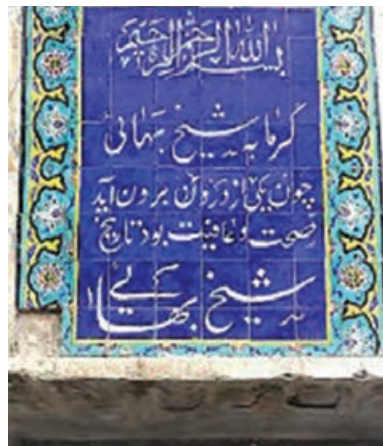 بسم الله الرحمن الرحیم
گرمابه شیخ بهائی
چون یکی از درونش برون آید
صحت و عافیت بود تاریخ
شیخ بهایی